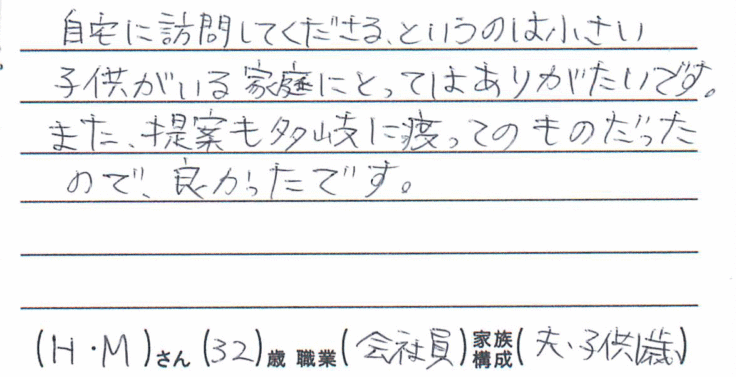 自宅に訪問してくださる、というのは小さい
子供がいる家庭にとってはありがたいです。
また、提案も多岐に渡ってのものだった
ので、良かったです。
(H・M)さん(32)歳 職業(会社員)家族構成(夫・子供1歳)